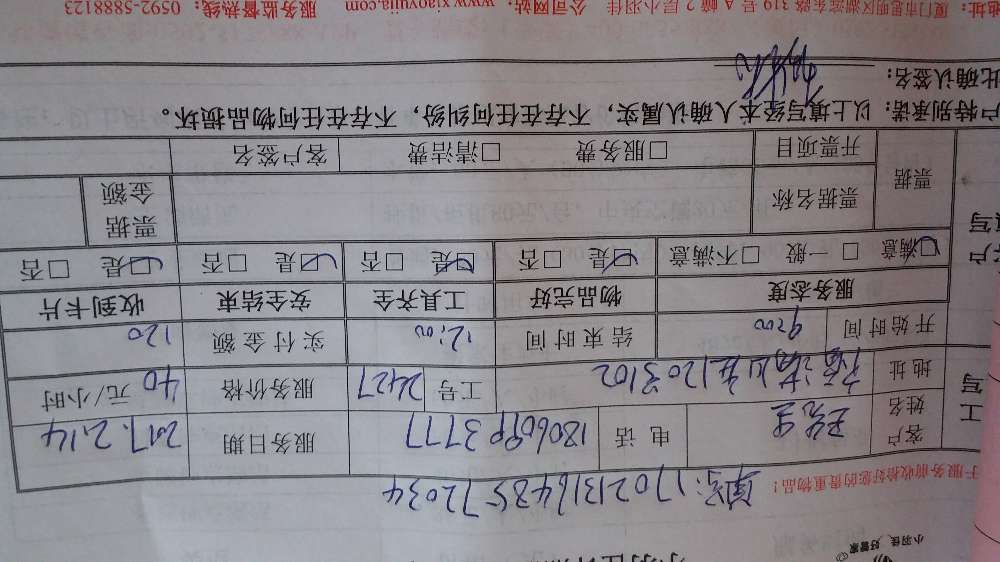 小羽佳、好管家
单号:17021316485572034
于服务前收拾好您的贵重物品!
客户姓名 王先生 电话 18060993777 服务日期 2017.2.14
地址 福满山庄1203102 工号 2427 服务价格 40 元/小时
开始时间 9:00 结束时间 12:00 实付金额 120
服务态度 物品完好 工具齐全 安全结束 收到卡片
☑满意 □一般 □不满意 ☑是 □否 ☑是 □否 ☑是 □否 ☑是 □否
票据 票据名称 票据金额
开票项目 □服务费 □清洁费 客户签名
户特别承诺:以上填写经本人确认属实,不存在任何纠纷,不存在任何物品损坏。
此确认签名:
地址:厦门市思明区湖滨东路 319 号 A 幢 2 层小羽佳 公司网站:www.xiaoyujia.com 服务监督热线:0592-5888123